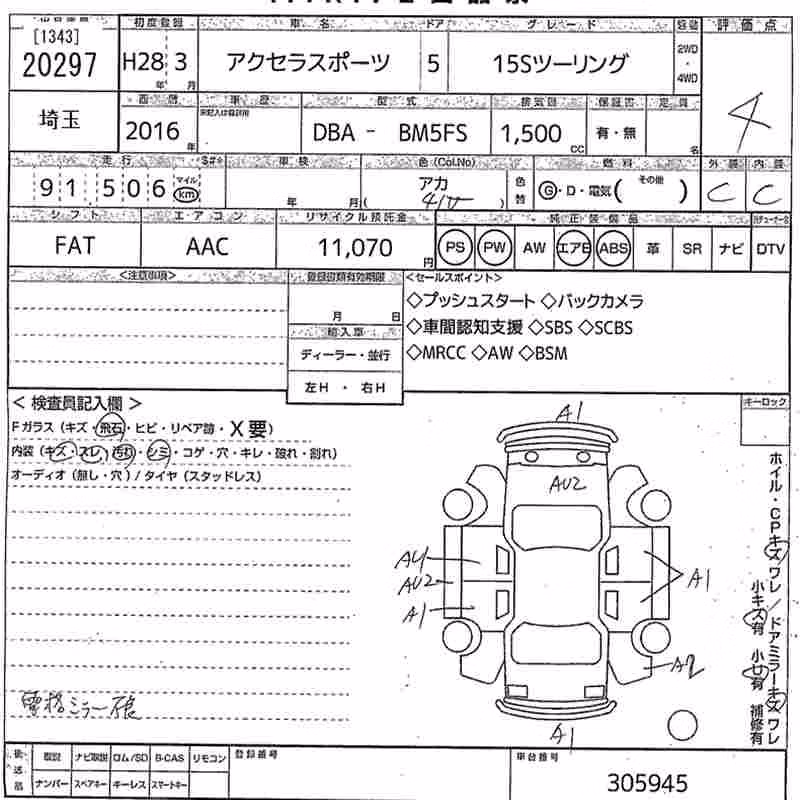 [1343]
20297
初度登録
車名
ドア
グレード
評価点
H28 3
年 月
アクセラスポーツ
5
15Sツーリング
2WD
・
4WD
4
埼玉
車歴
型式
排気量
保証書
定員
2016
年
DBA - BM5FS
1,500
CC
有・無
名
走行
車検
色(Col.No)
燃料
外装
内装
91506
マイル
km
年 月
アカ
色替
G・D・電気( その他 )
C
C
シフト
エアコン
リサイクル預託金
純正装備品
FAT
AAC
11,070
円
PS
PW
AW
エアB
ABS
革
SR
ナビ
DTV
<注意事項>
登録書類有効期限
月 日
輸入車
ディーラー・並行
左H ・ 右H
<セールスポイント>
◇プッシュスタート ◇バックカメラ
◇車間認知支援 ◇SBS ◇SCBS
◇MRCC ◇AW ◇BSM
< 検査員記入欄 >
Fガラス (キズ・飛石・ヒビ・リペア跡・X要)
内装 (キズ・スレ・汚れ・シミ・コゲ・穴・キレ・破れ・割れ)
オーディオ (無し・穴) / タイヤ (スタッドレス)
キーロック
A1
AU2
AU2
A1
A1
A2
A1
ホイル・CPキズワレ/ドアミラーキズワレ
小キズ有 小凹有 補修有
後送品
取説
ナビ取説
ロム/SD
B-CAS
リモコン
ナンバー
スペアキー
キーレス
スマートキー
登録番号
車台番号
305945